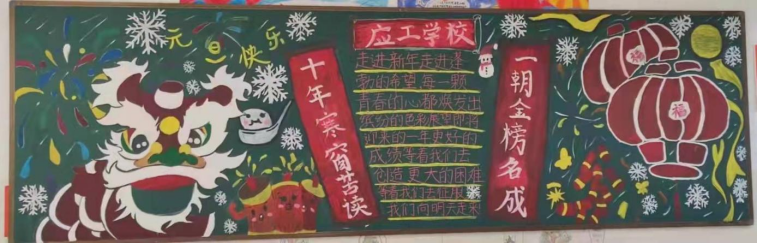 元旦快乐
十年寒窗苦读
应工学校
走进新年走进谨
我的希望每一颗
青春的心都焕发出
缤纷的色彩展望即将
到来的一年更好的
成绩等着我们去
创造更大的困难
等着我们去征服
我们向明天走来
一朝金榜名成
福
福